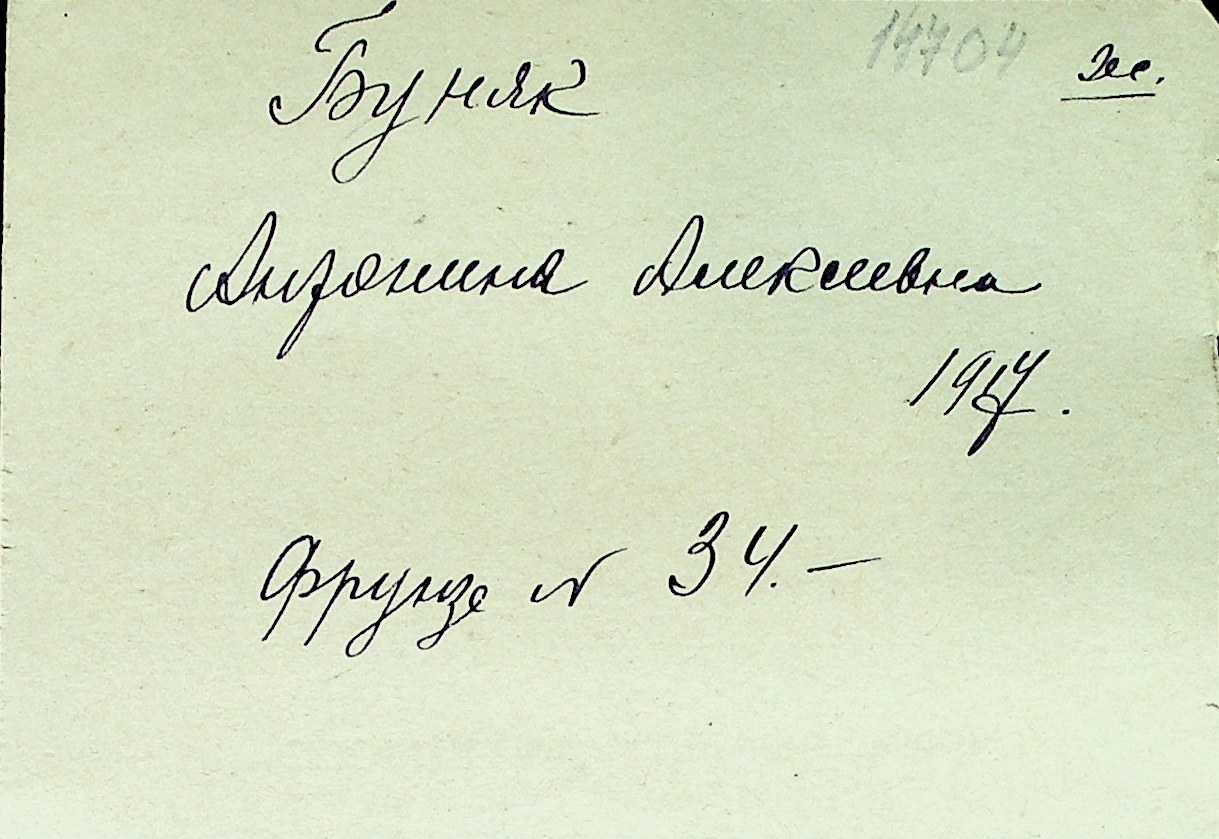 14704 Эк.
Буняк
Антонина Алексеевна
Фрунзе N 34. —